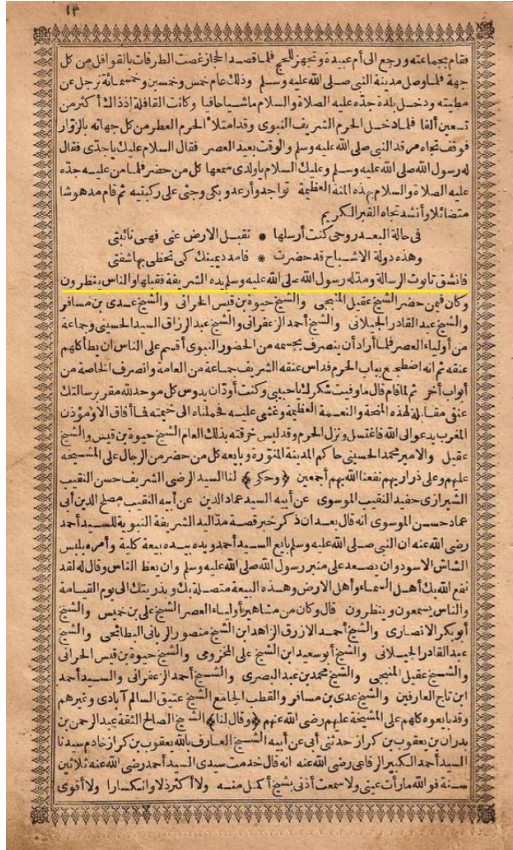 ١٣
فقام بجماعته ورجع الى أم عبيدة وتجهز للحج فلما قصد الحجاز غصت الطرقات بالقوافل من كل
جهة فلما وصل مدينة النبي صلى الله عليه وسلم وذلك عام خمس وخمسين وخمسمائة ترجل عن
مطيته ودخل بلدة جده عليه الصلاة والسلام ماشيا حافيا وكانت القافلة اذذاك أكثر من
تسعين ألفا فلما دخل الحرم الشريف النبوى وقد امتلأ الحرم العطر من كل جهاته بالزوار
فوقف تجاه مرقد النبي صلى الله عليه وسلم والوقت بعيد العصر فقال السلام عليك ياجدى فقال
له رسول الله صلى الله عليه وسلم وعليك السلام ياولدى سمعها كل من حضر فلما من عليه جده
عليه الصلاة والسلام بهذه المنة العظيمة تواجد وأرعد وبكى وجثى على ركبتيه ثم قام مدهوشا
متضائلا وأنشد تجاه القبر الكريم
فى حالة البعد روحى كنت أرسلها * تقبل الارض عنى فهى نائبتى
وهذه دولة الاشباح قد حضرت * فامدد يمينك كى تحظى بها شفتى
فانشق تابوت الرسالة ومد له رسول الله صلى الله عليه وسلم يده الشريفة فقبلها والناس ينظرون
وكان فيمن حضر الشيخ عقيل المنبجى والشيخ حيوة بن قيس الحرانى والشيخ عدى بن مسافر
والشيخ عبد القادر الجيلانى والشيخ أحمد الزعفرانى والشيخ عبد الرزاق السيد الحسينى وجماعة
من أولياء العصر فلما أراد أن ينصرف بجسمه من الحضور النبوى أقسم على الناس ان يطأ كلهم
عنقه ثم انه اضطجع بباب الحرم فداس عنقه الشريف جماعة من العامة وانصرف الخاصة من
أبواب أخر ثم لما قام قال ما وفيت شكرك ياحبيبى وكنت أود ان يدوس كل موحد لله مقر برسالتك
عنقى مقابلة لهذه المنحة والنعمة العظيمة وغشى عليه فحملناه الى خيمته فما أفاق الا ومؤذن
المغرب يدعو الى الله فاغتسل ونزل الحرم وقد لبس خرقته بذلك العام الشيخ حيوة بن قيس والشيخ
عقيل والامير محمد الحسينى حاكم المدينة المنورة وبايعه كل من حضر من الرجال على المشيخه
عليهم وعلى ذراريهم نفعنا الله بهم أجمعين ﴿وحكى﴾ لنا السيد الرضى الشريف حسن النقيب
الشيرازى حفيد النقيب الموسوى عن أبيه السيد عماد الدين عن أبيه النقيب مصلح الدين أبى
عماد حسن الموسوى انه قال بعد ان ذكر خبر قصة مد اليد الشريفة النبوية للسيد أحمد
رضى الله عنه ان النبي صلى الله عليه وسلم بايع السيد أحمد ويده بيده بيعة كلية وأمره بلبس
الشاش الاسود وان يصعد على منبر رسول الله صلى الله عليه وسلم وان يعظ الناس وقال له لقد
نفع الله بك أهل السماء وأهل الارض وهذه البيعة متصلة بك وبذريتك الى يوم القيامة
والناس يسمعون وينظرون قال وكان من مشاهير أولياء العصر الشيخ على بن خميس والشيخ
أبو بكر الانصارى والشيخ أحمد الازرق الزاهد ابن الشيخ منصور الربانى البطائحى والشيخ
عبد القادر الجيلانى والشيخ أبو سعيد ابن الشيخ على المخزومى والشيخ حيوة بن قيس الحرانى
والشيخ عقيل المنبجى والشيخ محمد بن عبد البصرى والشيخ أحمد الزعفرانى والسيد أحمد
ابن تاج العارفين والشيخ عدى بن مسافر والقطب الجامع الشيخ عتيق السالم آبادى وغيرهم
وقد بايعوه كلهم على المشيخة عليهم رضى الله عنهم ﴿وقال لنا﴾ الشيخ الصالح الثقة عبد الرحمن بن
بدران بن يعقوب بن كراز حدثنى أبى عن أبيه الشيخ العارف بالله يعقوب بن كراز خادم سيدنا
السيد أحمد الكبير الرفاعى رضى الله عنه انه قال خدمت سيدى السيد أحمد رضى الله عنه ثلاثين
سنة فوالله ما رأت عينى ولا سمعت أذنى بشيخ أكمل منه ولا أكثر ذلا وانكسارا ولا أقوى